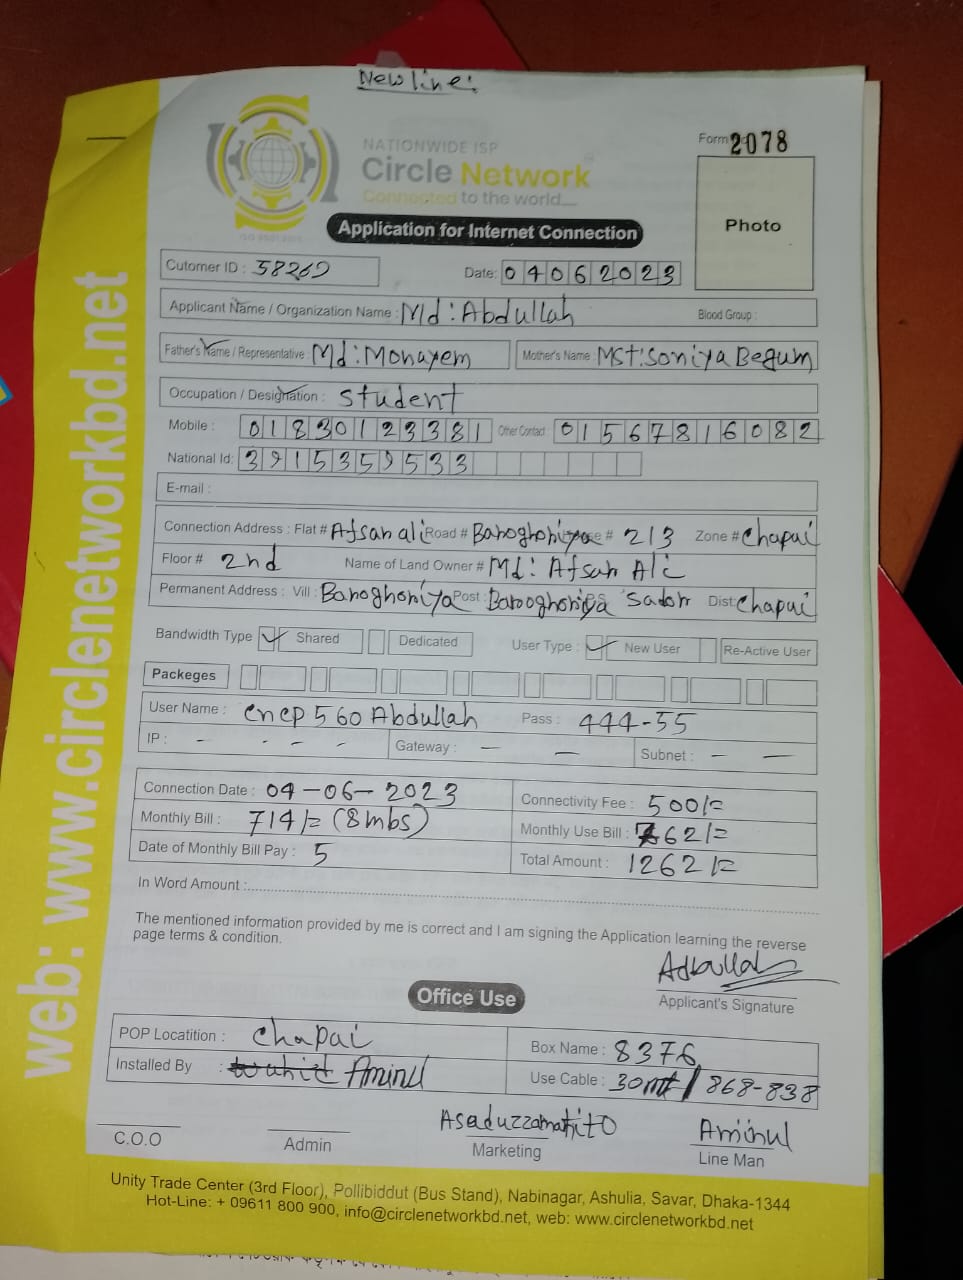 New line:
NATIONWIDE ISP
Circle Network
Connected to the world__
Form 2078
Photo
Application for Internet Connection
Cutomer ID : 58260 Date: 04062023
Applicant Name / Organization Name : Md : Abdullah Blood Group :
Father's Name / Representative : Md : Monayem Mother's Name : MSt: Soniya Begum
Occupation / Designation : Student
Mobile : 01830123381 Other Contact : 01567816082
National Id: 3915359533
E-mail :
Connection Address : Flat # Afsan ali Road # Baroghoriya # 213 Zone # Chapai
Floor # 2nd Name of Land Owner # Md : Afsan Ali
Permanent Address : Vill : Baroghoriya Post : Barooghoriya Sadar Dist: Chapai
Bandwidth Type Shared Dedicated User Type : New User Re-Active User
Packeges
User Name : cncp 560 Abdullah Pass : 444-55
IP : - - - - Gateway : - - Subnet : - -
Connection Date : 04-06-2023 Connectivity Fee : 500/=
Monthly Bill : 714/= (8mbs) Monthly Use Bill : 762/=
Date of Monthly Bill Pay : 5 Total Amount : 1262/=
In Word Amount :
The mentioned information provided by me is correct and I am signing the Application learning the reverse
page terms & condition.
Abdullah
Applicant's Signature
Office Use
POP Locatition : Chapai Box Name : 8376
Installed By : Aminul Use Cable : 30mt/868-838
Asaduzzaman Aminul
C.O.O Admin Marketing Line Man
Unity Trade Center (3rd Floor), Pollibiddut (Bus Stand), Nabinagar, Ashulia, Savar, Dhaka-1344
Hot-Line: + 09611 800 900, info@circlenetworkbd.net, web: www.circlenetworkbd.net
web: www.circlenetworkbd.net